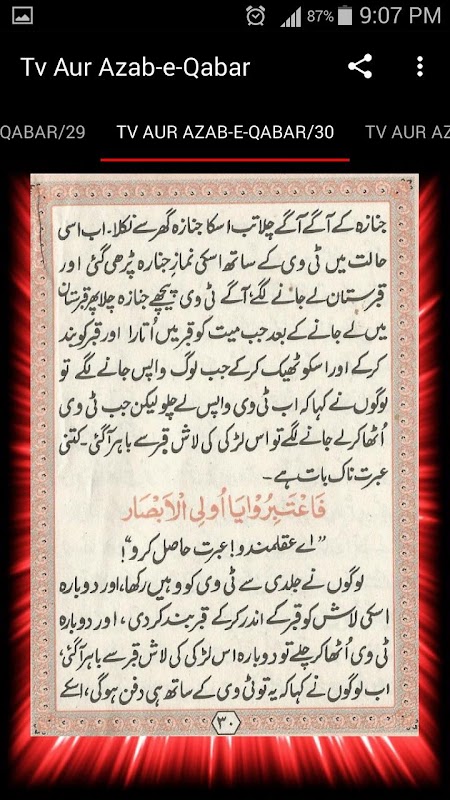 87% 9:07 PM
Tv Aur Azab-e-Qabar
QABAR/29 TV AUR AZAB-E-QABAR/30 TV AUR AZ
جنازہ کے آگے آگے چلا تب اسکا جنازہ گھر سے نکلا۔ اب اسی
حالت میں ٹی وی کے ساتھ اسکی نمازِ جنارہ پڑھی گئی اور
قبرستان لے جانے لگے، آگے ٹی وی پیچھے جنازہ چلا پھر قبرستان
میں لے جانے کے بعد جب میت کو قبر میں اُتارا اور قبر کو بند
کر کے اور اسکو ٹھیک کر کے جب لوگ واپس جانے لگے تو
لوگوں نے کہا کہ اب ٹی وی واپس لے چلو لیکن جب ٹی وی
اُٹھا کر لے جانے لگے تو اس لڑکی کی لاش قبر سے باہر آگئی۔ کتنی
عبرت ناک بات ہے۔
فَاعْتَبِرُوْا يَا اُولِی الْاَبْصَار
”اے عقلمندو! عبرت حاصل کرو“!
لوگوں نے جلدی سے ٹی وی کو وہیں رکھا، اور دوبارہ
اسکی لاش کو قبر کے اندر کر کے قبر بند کر دی ، اور دوبارہ
ٹی وی اُٹھا کر چلے تو دوبارہ اس لڑکی کی لاش قبر سے باہر آگئی،
اب لوگوں نے کہا کہ یہ تو ٹی وی کے ساتھ ہی دفن ہوگی، اسکے
۳۰